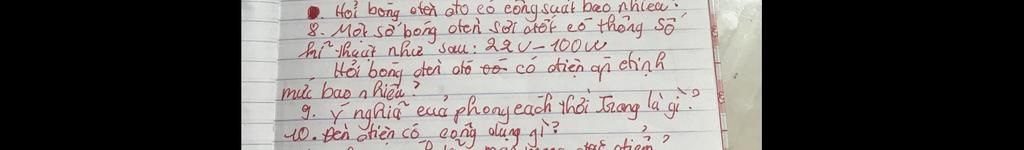 Hỏi bóng đèn đó có công suất bao nhiêu?
8. Một số bóng đèn sợi đốt có thông số
kĩ thuật như sau: 22V-100W
Hỏi bóng đèn đó có điện áp định
mức bao nhiêu?
9. Ý nghĩa của phong cách thời trang là gì?
10. Đèn điện có công dụng gì?